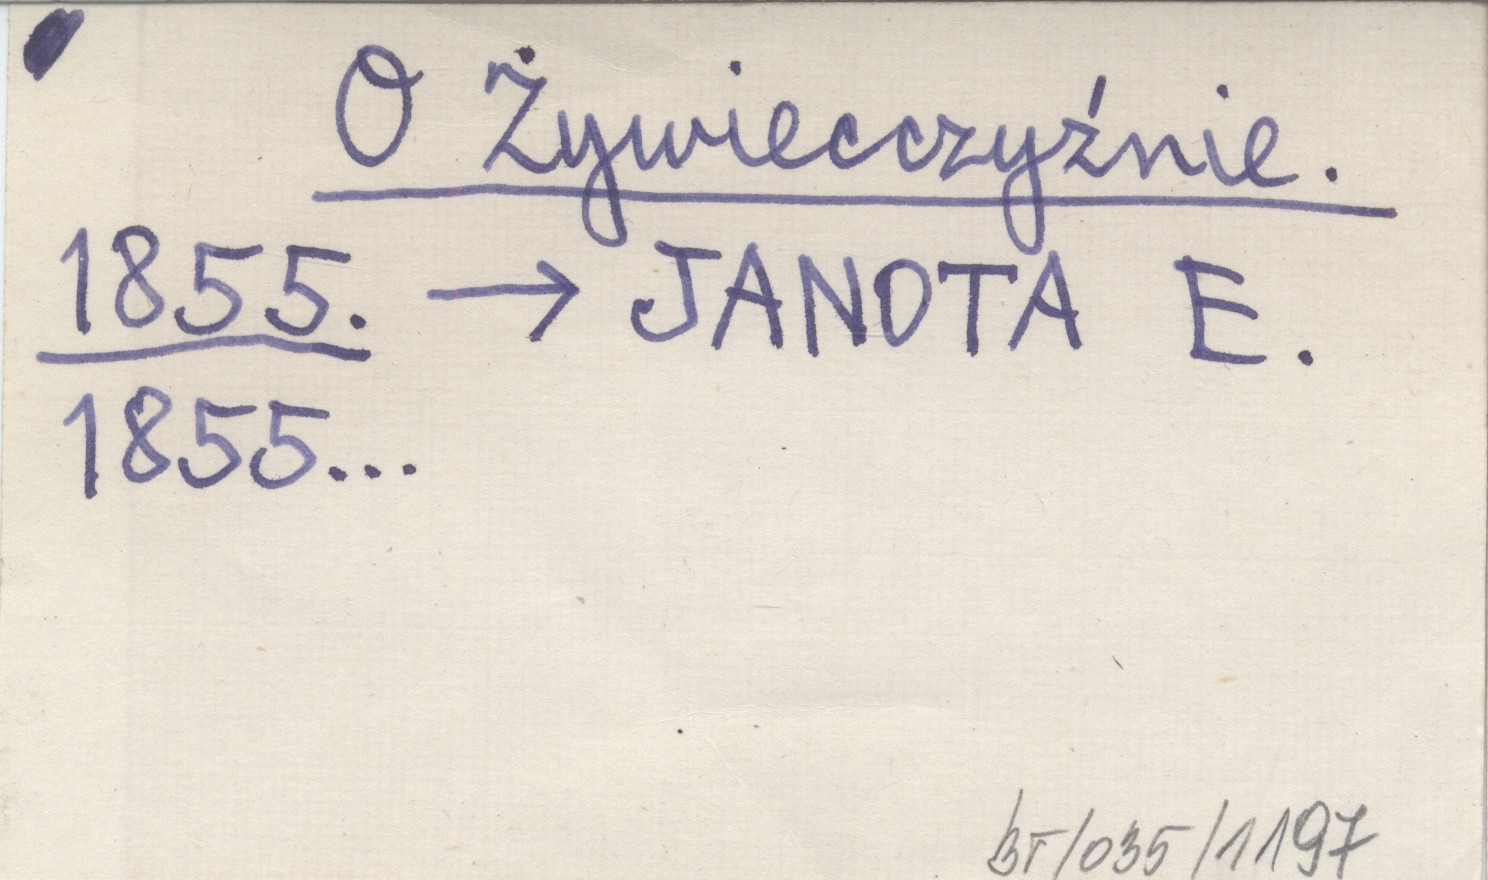 O Żywiecczyźnie.
1855. → JANOTA E.
1855...
BT/035/1197